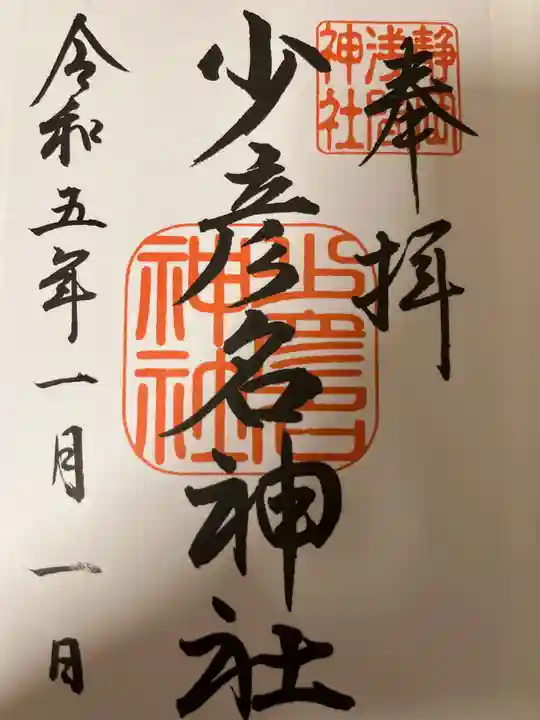 奉拝
静岡
浅間
神社
少彦名神社
少彦名
神社
令和五年一月一日